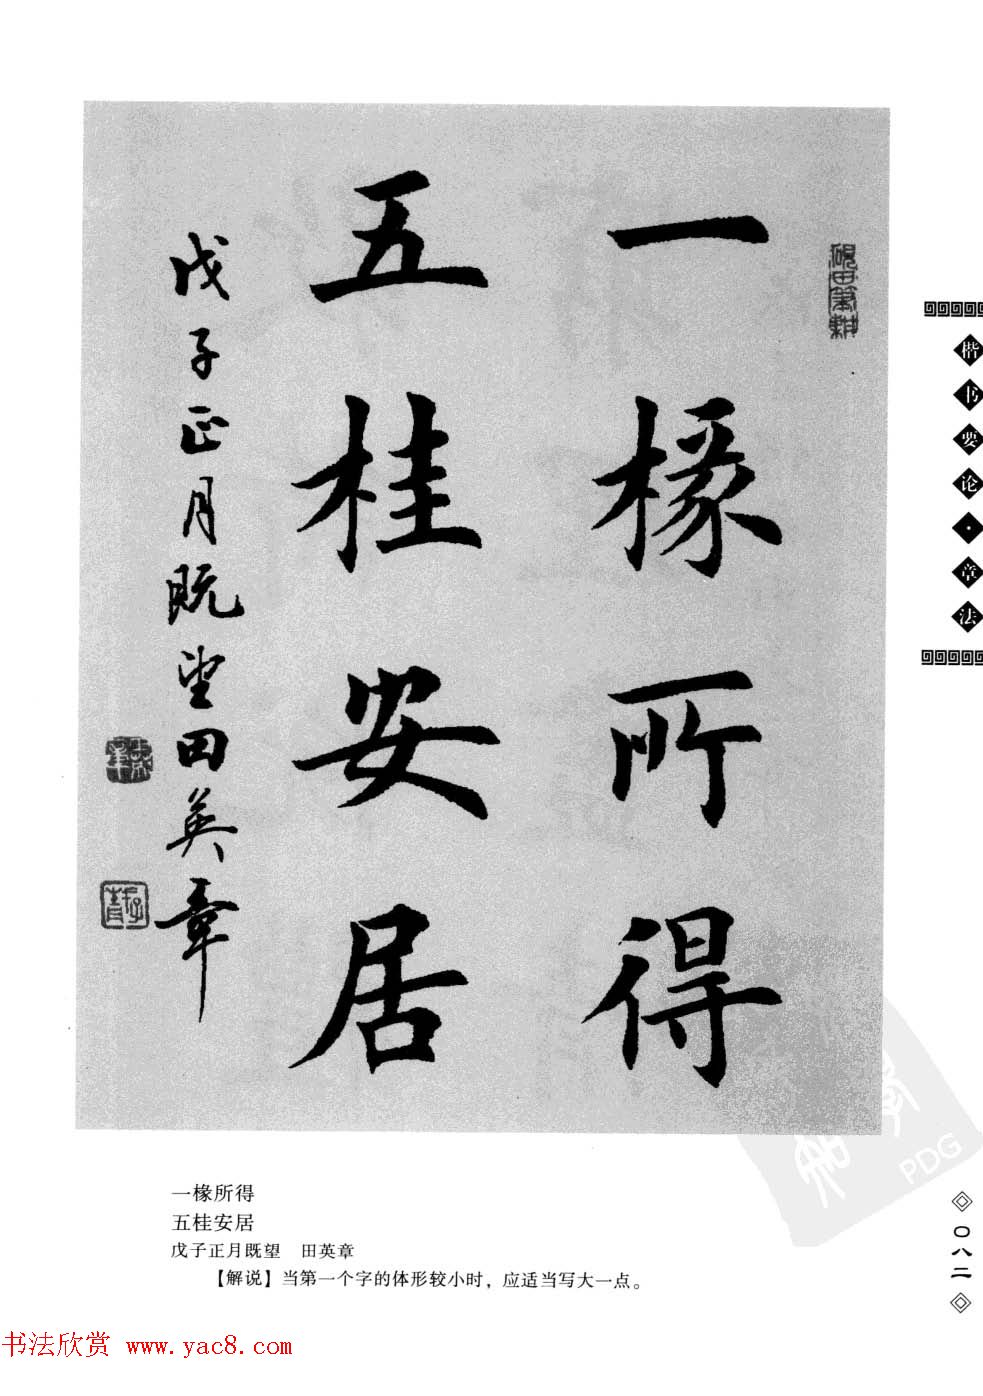 一椽所得
五桂安居
戊子正月既望田英章
砚田笔耕
楷书要论·章法
一椽所得
五桂安居
戊子正月既望 田英章
【解说】当第一个字的体形较小时，应适当写大一点。
〇八二
PDG
书法欣赏 www.yac8.com